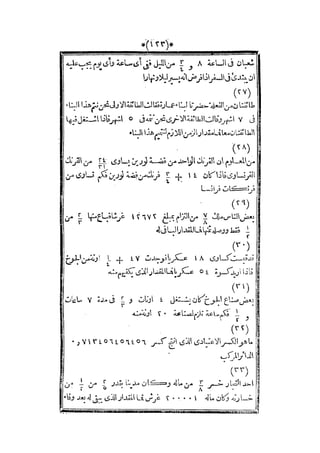 *(١٢٣)*
شعبان فى الساعة ٨ و ٣/٤ من الليل ففى أى ساعة وأى يوم يجب عليه
ان يبتدئ فى السفر اذا فرض انه يسير ليلا ونهارا
(٢٧)
طائفتان من الفعلة حضرتا لبناء عمارة فقالت الطائفة الاولى نحن نتم هذا البناء
فى ٧ اشهر وقالت الطائفة الاخرى نحن نتمه فى ٥ اشهر فاذا اشتغل فيها
الطائفتان معا فما مقدار الزمن اللازم لتتميم هذا البناء
(٢٨)
من المعلوم ان الفرنك الواحد من فضة لورين يساوى من الفرنك
الفرنساوى فاذا كان ١٤ + فرنك من فضة لورين فكم تساوى من
فرنكات فرانسا
(٢٩)
بعض الناس ملك ٧/٨ من التزام بمبلغ ١٢٦٧٢ غرشا فباع منها ٢/٣ من
١/٢ فقط ووصله ثمنها فما المقدار الباقى له
(٣٠)
قدم بست كساوى ١٨ عسكريا فوجدت ٤٧ + اونس من الجوخ
فاذا اريد كسوة ٥٤ عسكريا فما المقدار الذى يكفيهم منه
(٣١)
بعض صناع الجوخ كان يشتغل ٤ اونات و ٢/٣ فى مدة ٧ ساعات
و ١/٢ فكم ساعة تلزم لصناعة ٢٠ اونة منه
(٣٢)
ماهو الكسر الاعتيادى الذى انتج كسر ٠و٧١٣٤٥٦٤٥٦٤٥٦
الدائر المركب
(٣٣)
احد التجار خسر ٣/٨ من ماله وكان مدينا بقدر ٢/٥ من ١/٢ من
خسارته وكان ماله ٢٠٠٠٠١ غرش فما المقدار الذى يبقى له بعد وفاء